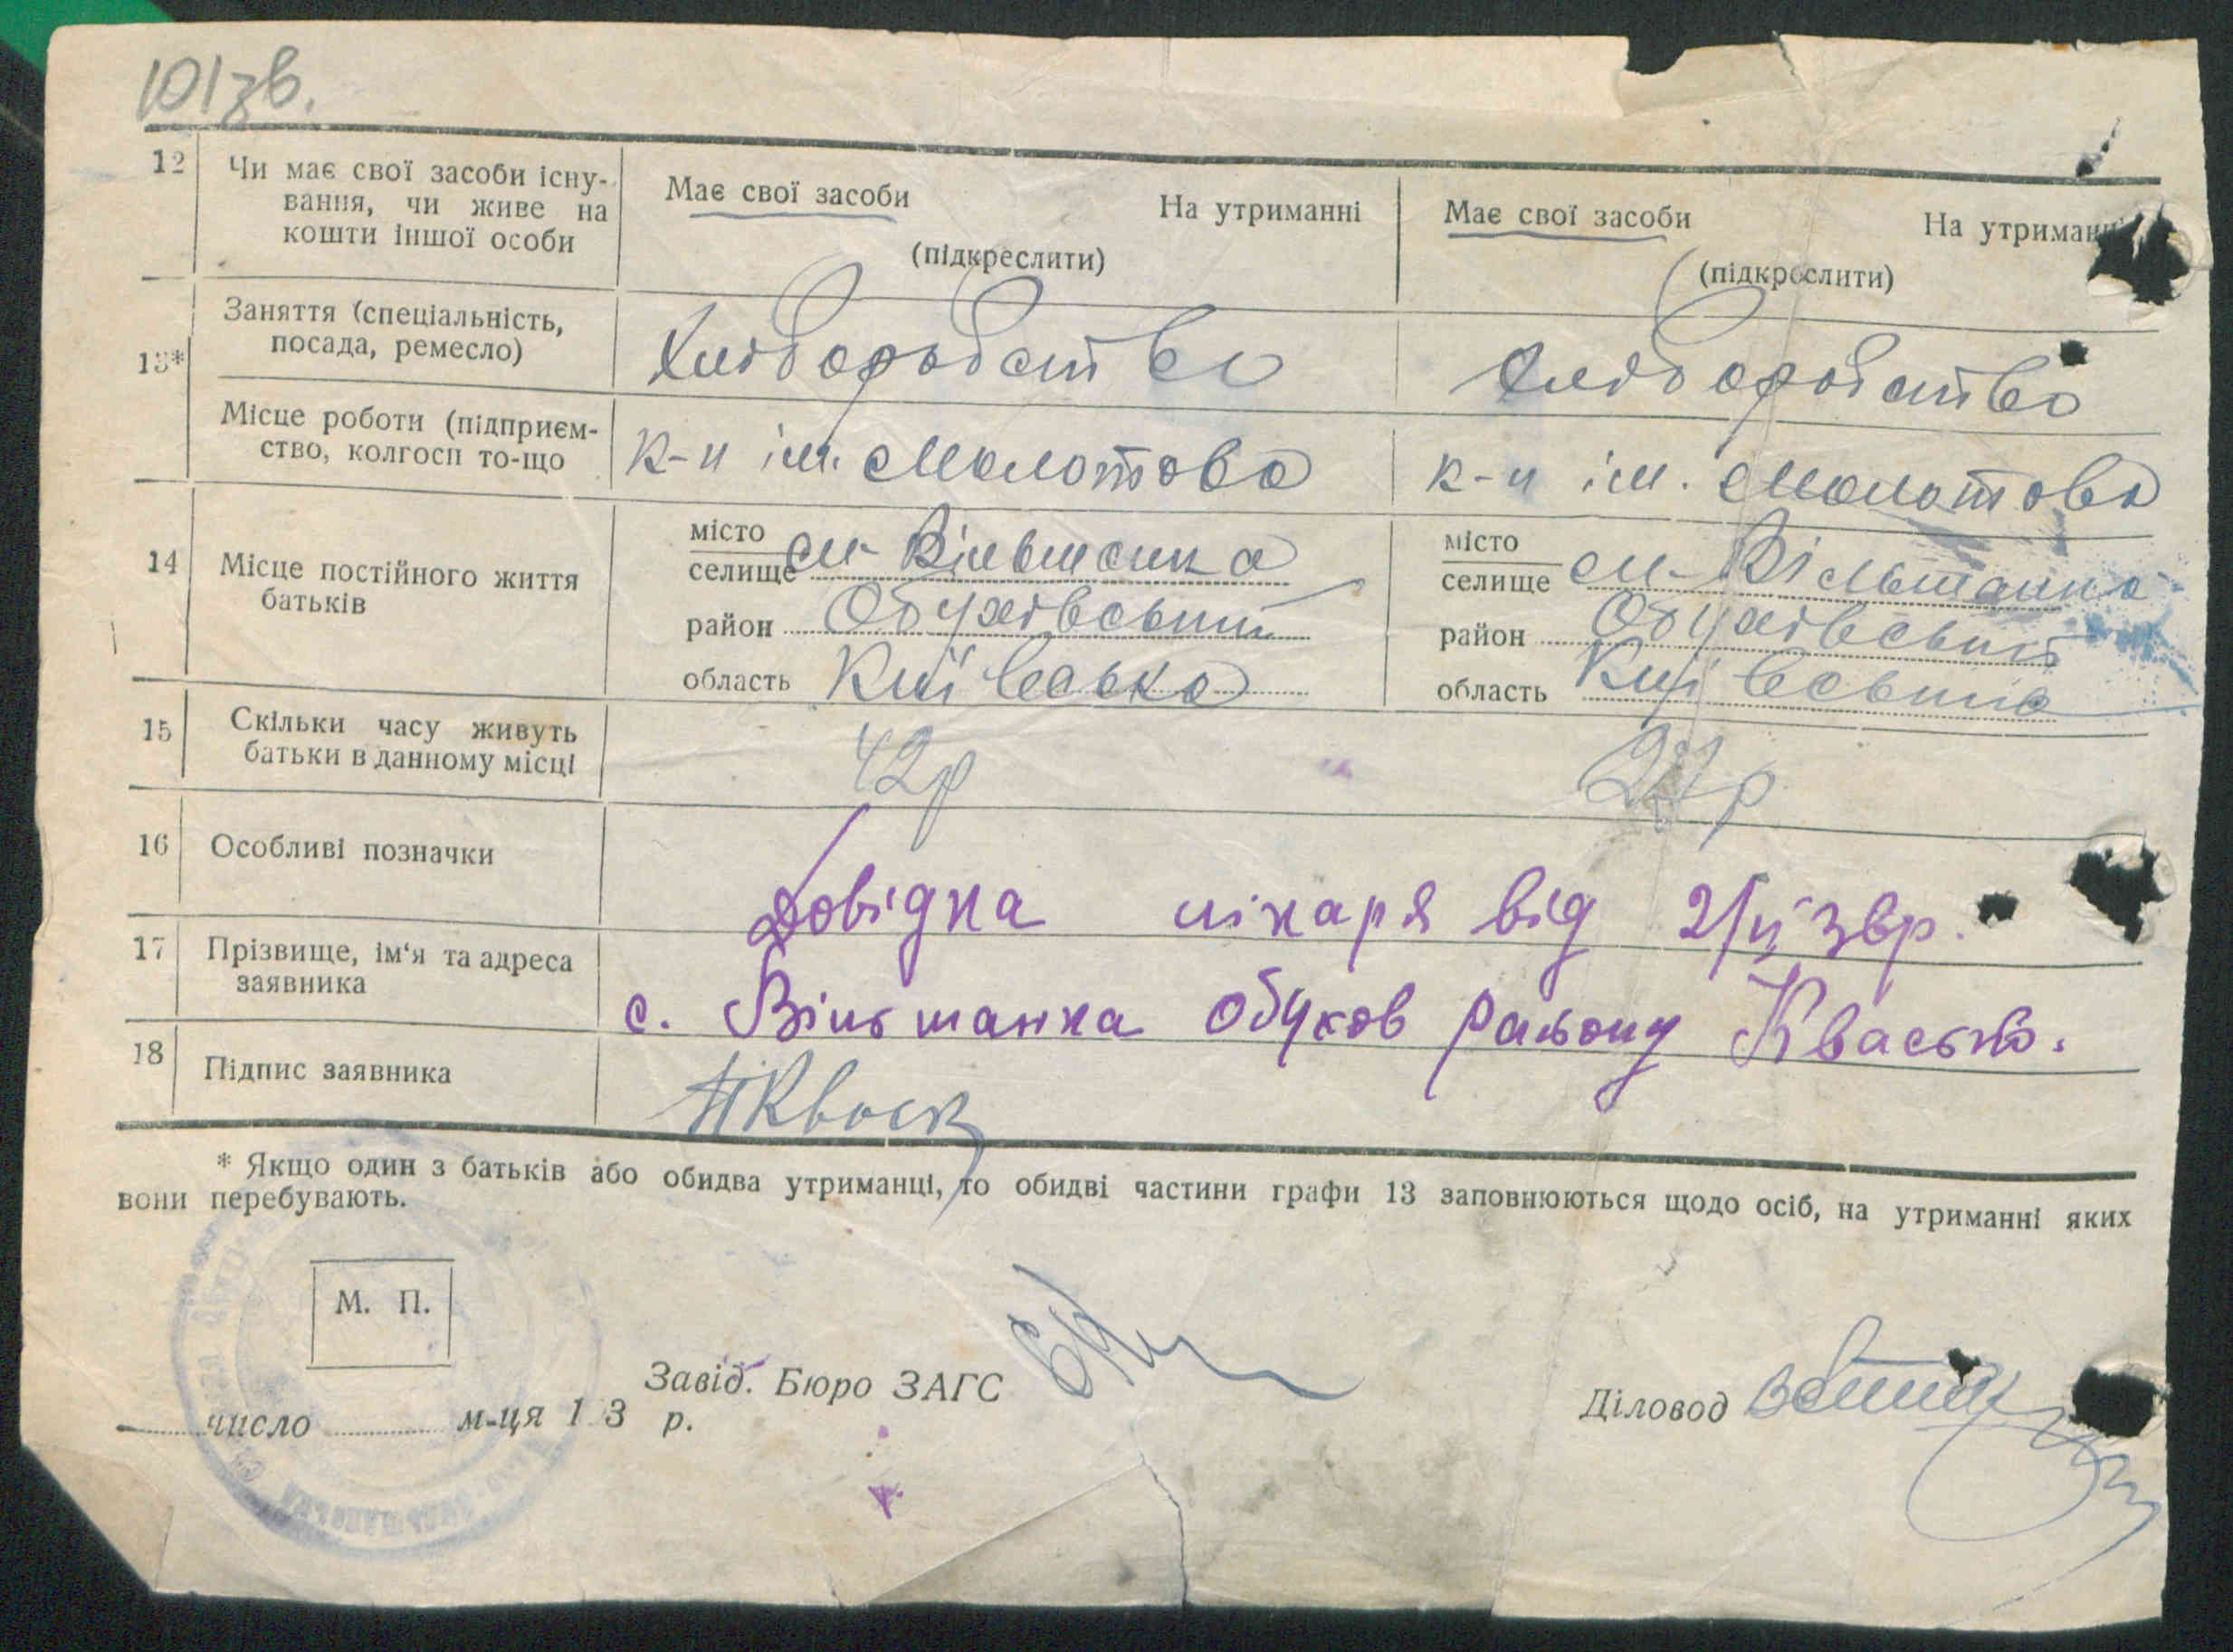 101зв.
12 Чи має свої засоби існу-
вання, чи живе на
кошти іншої особи
Має свої засоби На утриманні
(підкреслити)
Має свої засоби На утриманні
(підкреслити)
13* Заняття (спеціальність,
посада, ремесло)
Хліборобство
Хліборобство
Місце роботи (підприєм-
ство, колгосп то-що
к-п ім. Молотова
к-п ім. Молотова
14 Місце постійного життя
батьків
місто
селище см- Вільшанка
район Обухівський
область Київська
місто
селище см- Вільшанка
район Обухівський
область
15 Скільки часу живуть
батьки в данному місці
42р
р
16 Особливі позначки
Довідка лікаря від звр.
17 Прізвище, ім'я та адреса
заявника
с. Вільшанка Обухов району Квасько.
18 Підпис заявника
* Якщо один з батьків або обидва утриманці, то обидві частини графи 13 заповнюються щодо осіб, на утриманні яких
вони перебувають.
М. П.
число м-ця 1 3 р.
Завід. Бюро ЗАГС
Діловод